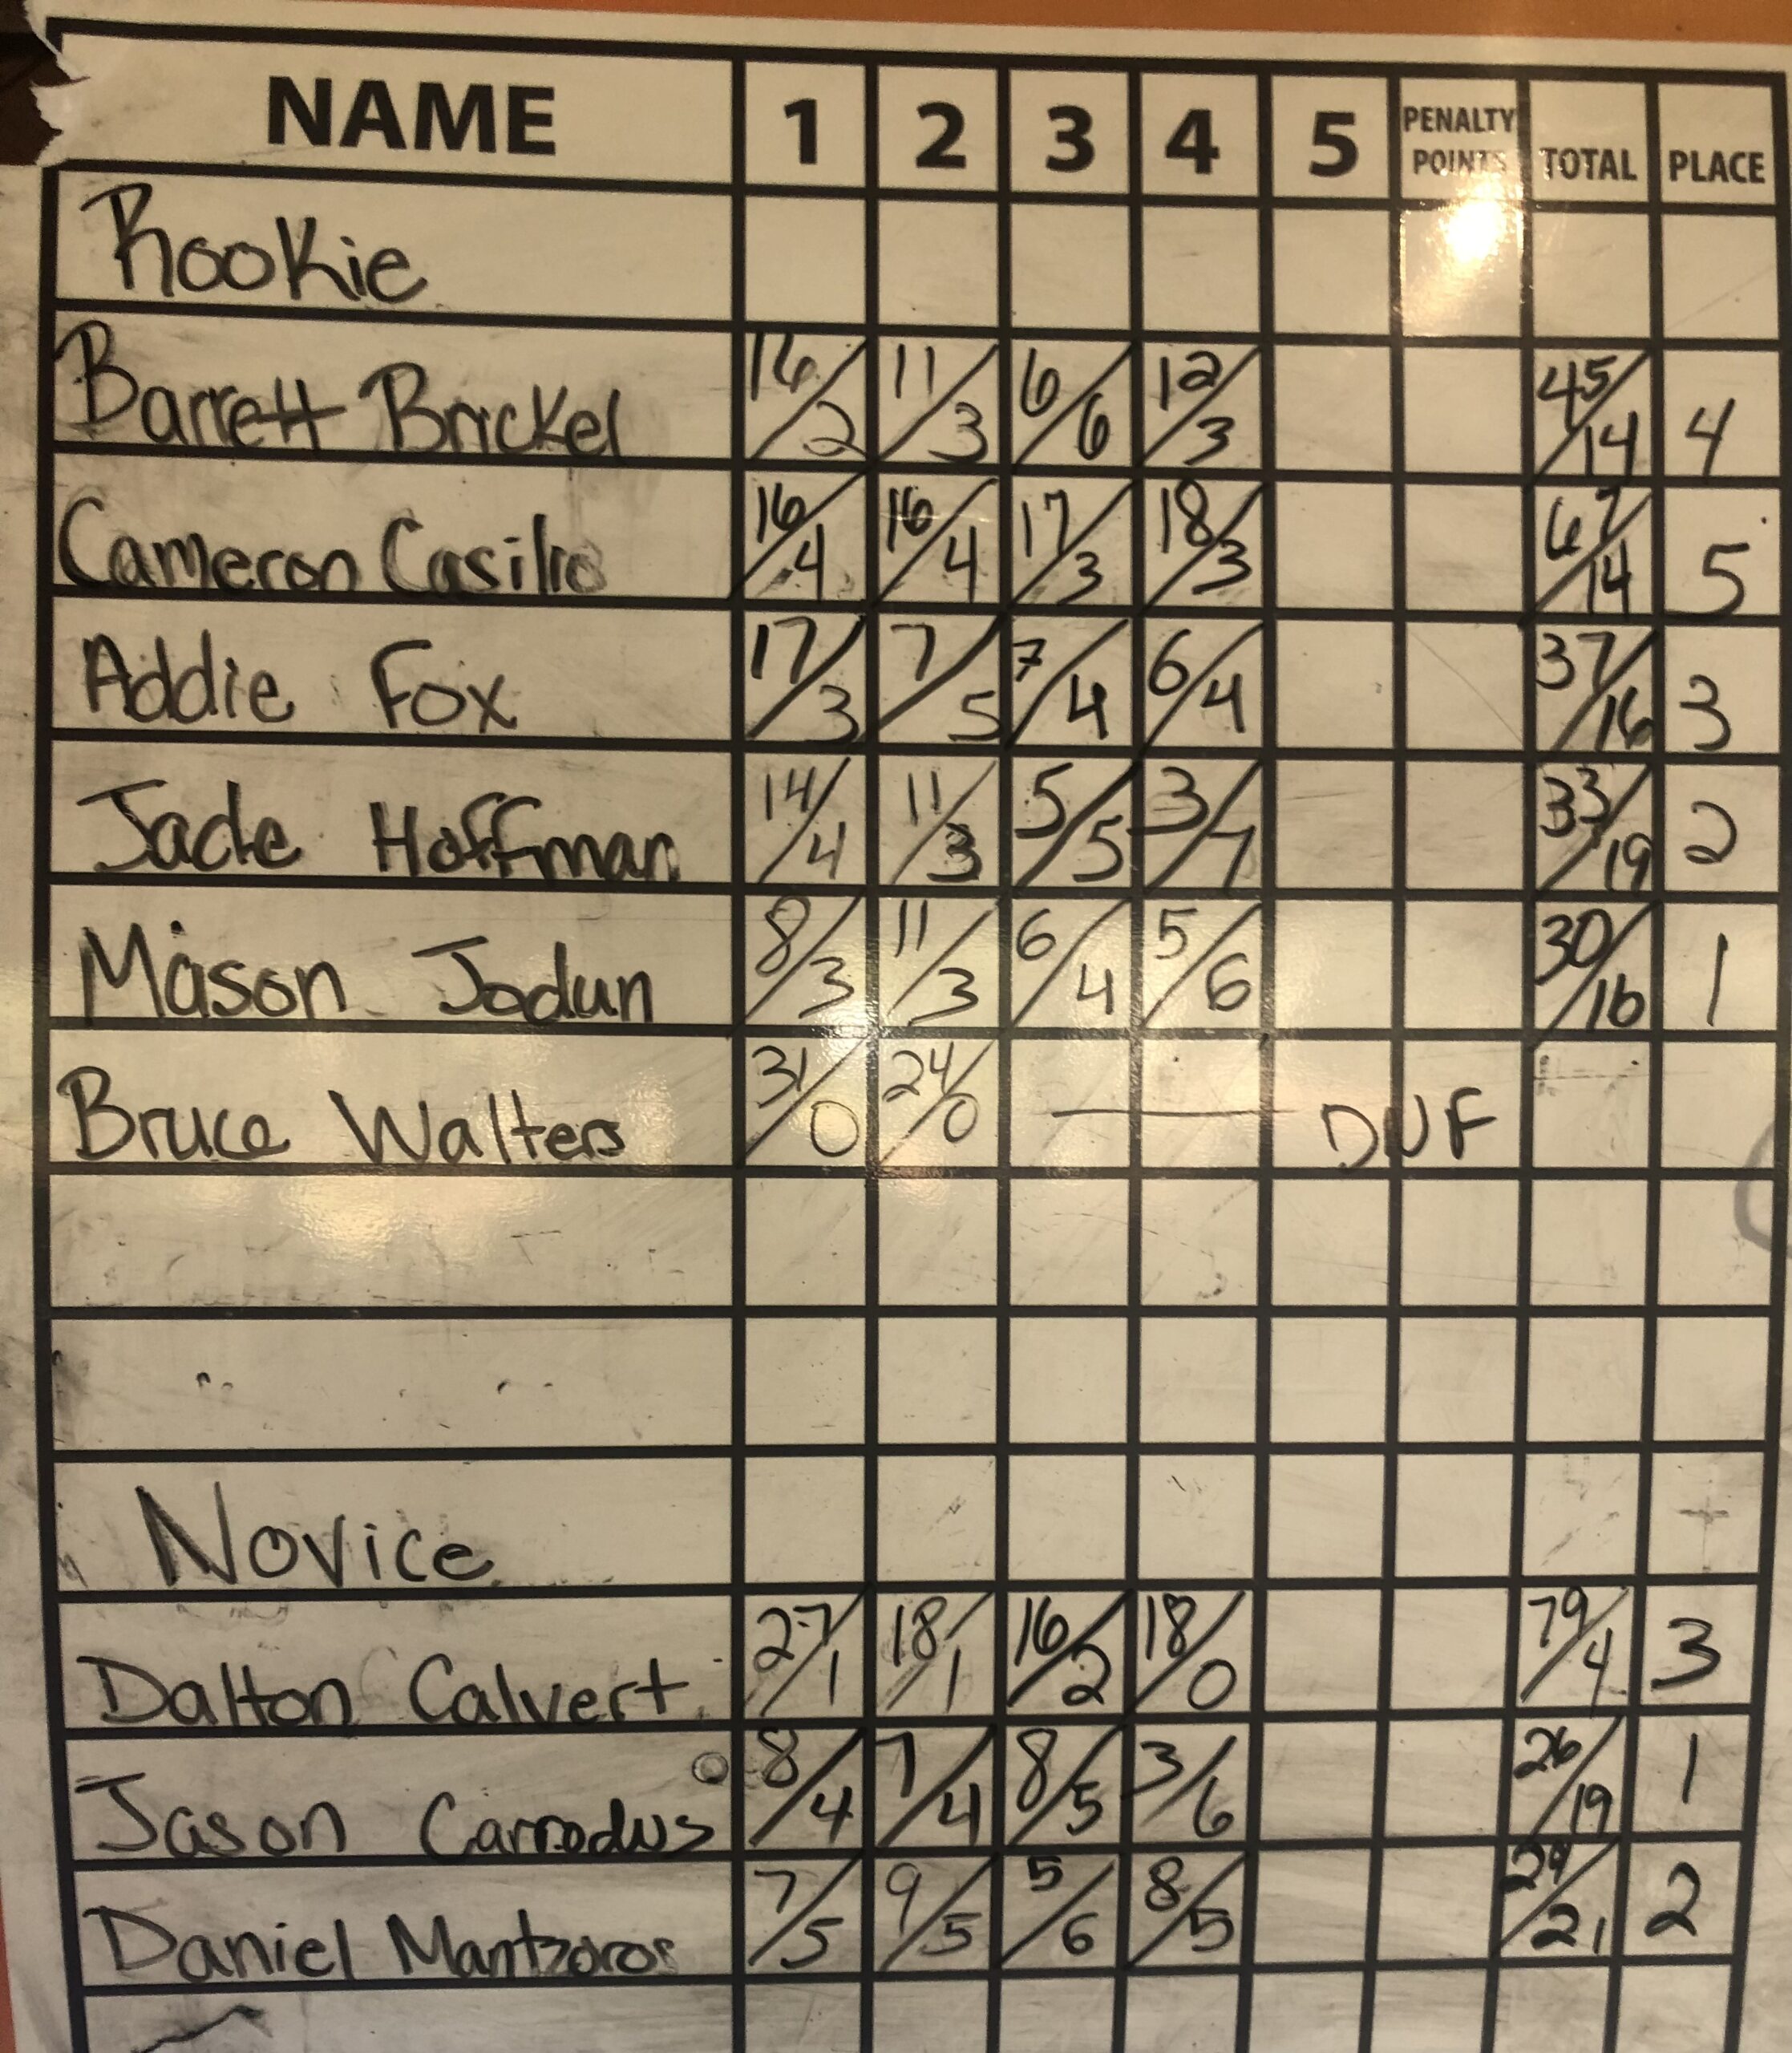 NAME 1 2 3 4 5 PENALTY POINTS TOTAL PLACE
Rookie
Barrett Brickel 16/2 11/3 6/6 12/3 45/14 4
Cameron Casilio 16/4 16/4 17/3 18/3 67/14 5
Addie Fox 17/3 7/5 7/4 6/4 37/16 3
Jade Hoffman 14/4 11/3 5/5 3/7 33/19 2
Mason Jodun 8/3 11/3 6/4 5/6 30/16 1
Bruce Walters 31/0 24/0 — DNF
Novice
Dalton Calvert 27/1 18/1 16/2 18/0 79/4 3
Jason Carrodus 8/4 7/4 8/5 3/6 26/19 1
Daniel Mantzoros 7/5 9/5 5/6 8/5 29/21 2